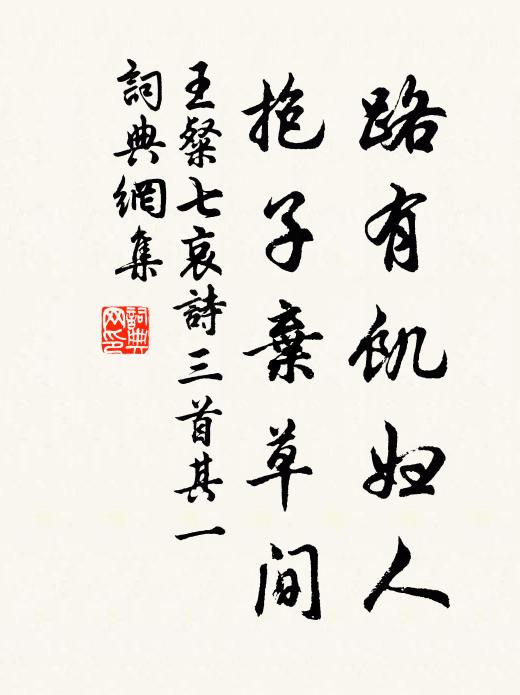 路有飢婦人
抱子棄草間
王粲七哀詩三首其一
詞典網集
詞典网印